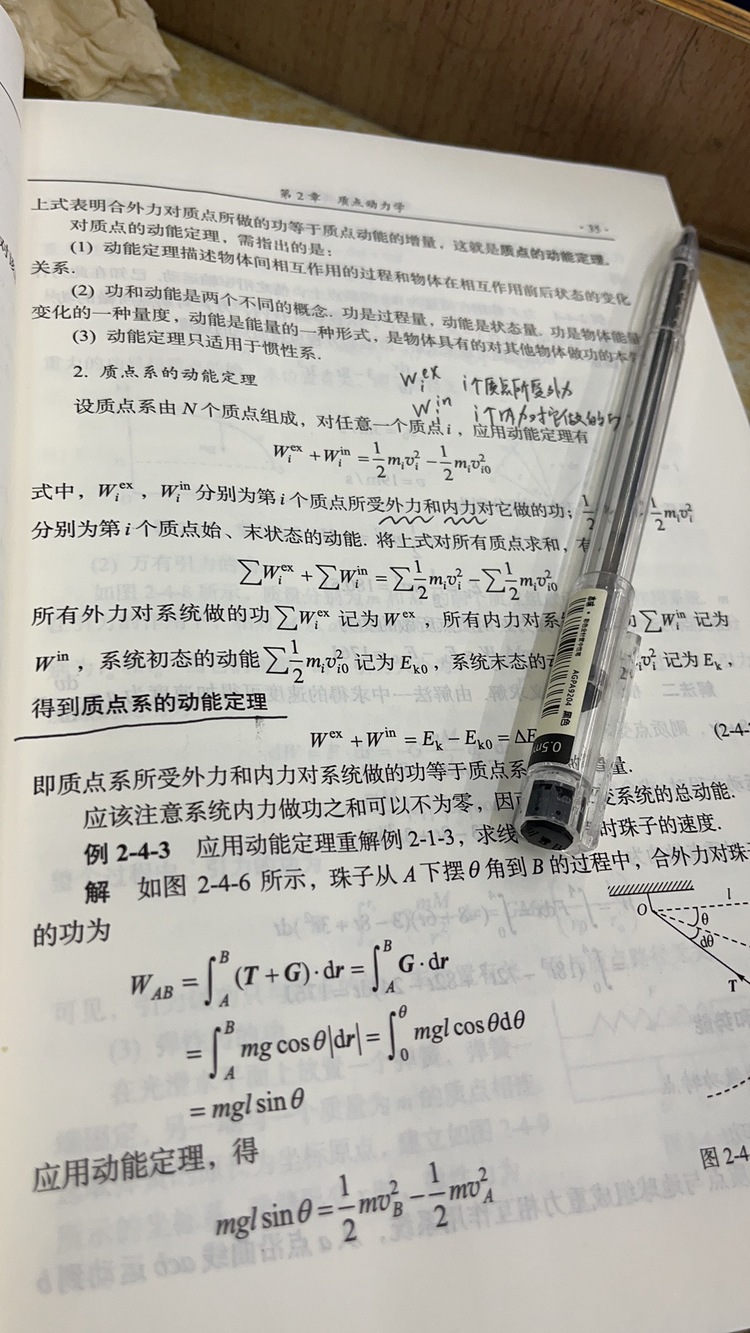 第2章 质点动力学 ·35·
上式表明合外力对质点所做的功等于质点动能的增量，这就是质点的动能定理.
对质点的动能定理，需指出的是：
(1) 动能定理描述物体间相互作用的过程和物体在相互作用前后状态的变化
关系.
(2) 功和动能是两个不同的概念. 功是过程量，动能是状态量. 功是物体能量
变化的一种量度，动能是能量的一种形式，是物体具有的对其他物体做功的本
(3) 动能定理只适用于惯性系.
2. 质点系的动能定理
W_i^ex i个质点所受外力
W_i^in i个内力对它做的功
设质点系由 N 个质点组成，对任意一个质点 i，应用动能定理有
W_i^ex + W_i^in = 1/2 m_i v_i^2 − 1/2 m_i v_i0^2
式中，W_i^ex，W_i^in 分别为第 i 个质点所受外力和内力对它做的功；1/2 1/2 m_i v_i^2
分别为第 i 个质点始、末状态的动能. 将上式对所有质点求和，有
∑W_i^ex + ∑W_i^in = ∑1/2 m_i v_i^2 − ∑1/2 m_i v_i0^2
所有外力对系统做的功 ∑W_i^ex 记为 W^ex，所有内力对系 ∑W_i^in 记为
W^in，系统初态的动能 ∑1/2 m_i v_i0^2 记为 E_k0，系统末态的动 v_i^2 记为 E_k，
得到质点系的动能定理
W^ex + W^in = E_k − E_k0 = ΔE (2-4-
即质点系所受外力和内力对系统做的功等于质点系 量.
应该注意系统内力做功之和可以不为零，因 变系统的总动能.
例 2-4-3 应用动能定理重解例 2-1-3，求线 时珠子的速度.
解 如图 2-4-6 所示，珠子从 A 下摆 θ 角到 B 的过程中，合外力对珠
的功为
W_AB = ∫_A^B (T + G)·dr = ∫_A^B G·dr
= ∫_A^B mg cos θ|dr| = ∫_0^θ mgl cos θdθ
= mgl sin θ
应用动能定理，得
mgl sin θ = 1/2 mv_B^2 − 1/2 mv_A^2
O l
θ
dθ
T
图 2-4
AGPA9204 黑色
0.5m